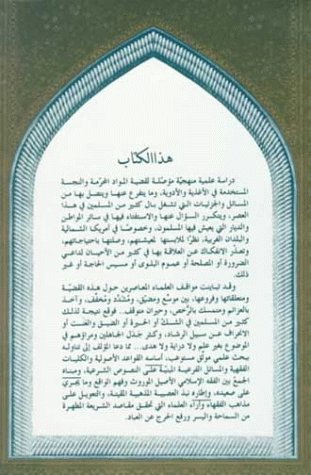 هذا الكتاب
دراسة علمية منهجية مؤصلة لقضية المواد المحرمة والنجسة
المستخدمة في الأغذية والأدوية، وما يتفرع عنها ويتصل بها من
المسائل والجزئيات التي تشغل بال كثير من المسلمين في هذا
العصر، ويتكرر السؤال عنها والاستفتاء فيها في سائر المواطن
والديار التي يعيش فيها المسلمون، وخصوصًا في أمريكا الشمالية
والبلدان الغربية، نظرًا لملابستها لمعيشتهم، وصلتها باحتياجاتهم،
وتعذر الانفكاك عن العلاقة بها في كثير من الأحيان لداعي
الضرورة أو المصلحة أو عموم البلوى أو مسيس الحاجة أو غير
ذلك.
وقد تباينت مواقف العلماء المعاصرين حول هذه القضية
ومتعلقاتها وفروعها، بين موسع ومضيق، ومتشدد ومخفف، وآخذ
بالعزائم ومتمسك بالرخص، وحيران متوقف.. فوقع نتيجة لذلك
كثير من المسلمين في الشك أو الحيرة أو الضيق والعنت أو
الانحراف عن سبيل الرشاد، وكثر جدل الجاهلين ومراؤهم في
الموضوع بغير علم ولا دراية ولا هدى.. مما دعا المؤلف إلى تناوله
ببحث علمي موثق مستوعب، أساسه القواعد الأصولية والكليات
الفقهية والمسائل الفرعية المبنية على النصوص الشرعية، ومبناه
الجمع بين الفقه الإسلامي الأصيل الموروث وفهم الواقع وما يجري
على صعيده، وإطاره نبذ العصبية المذهبية المقيتة، والتعويل على
مذاهب الفقهاء وآراء العلماء التي تحقق مقاصد الشريعة المطهرة
من السماحة واليسر ورفع الحرج عن العباد.